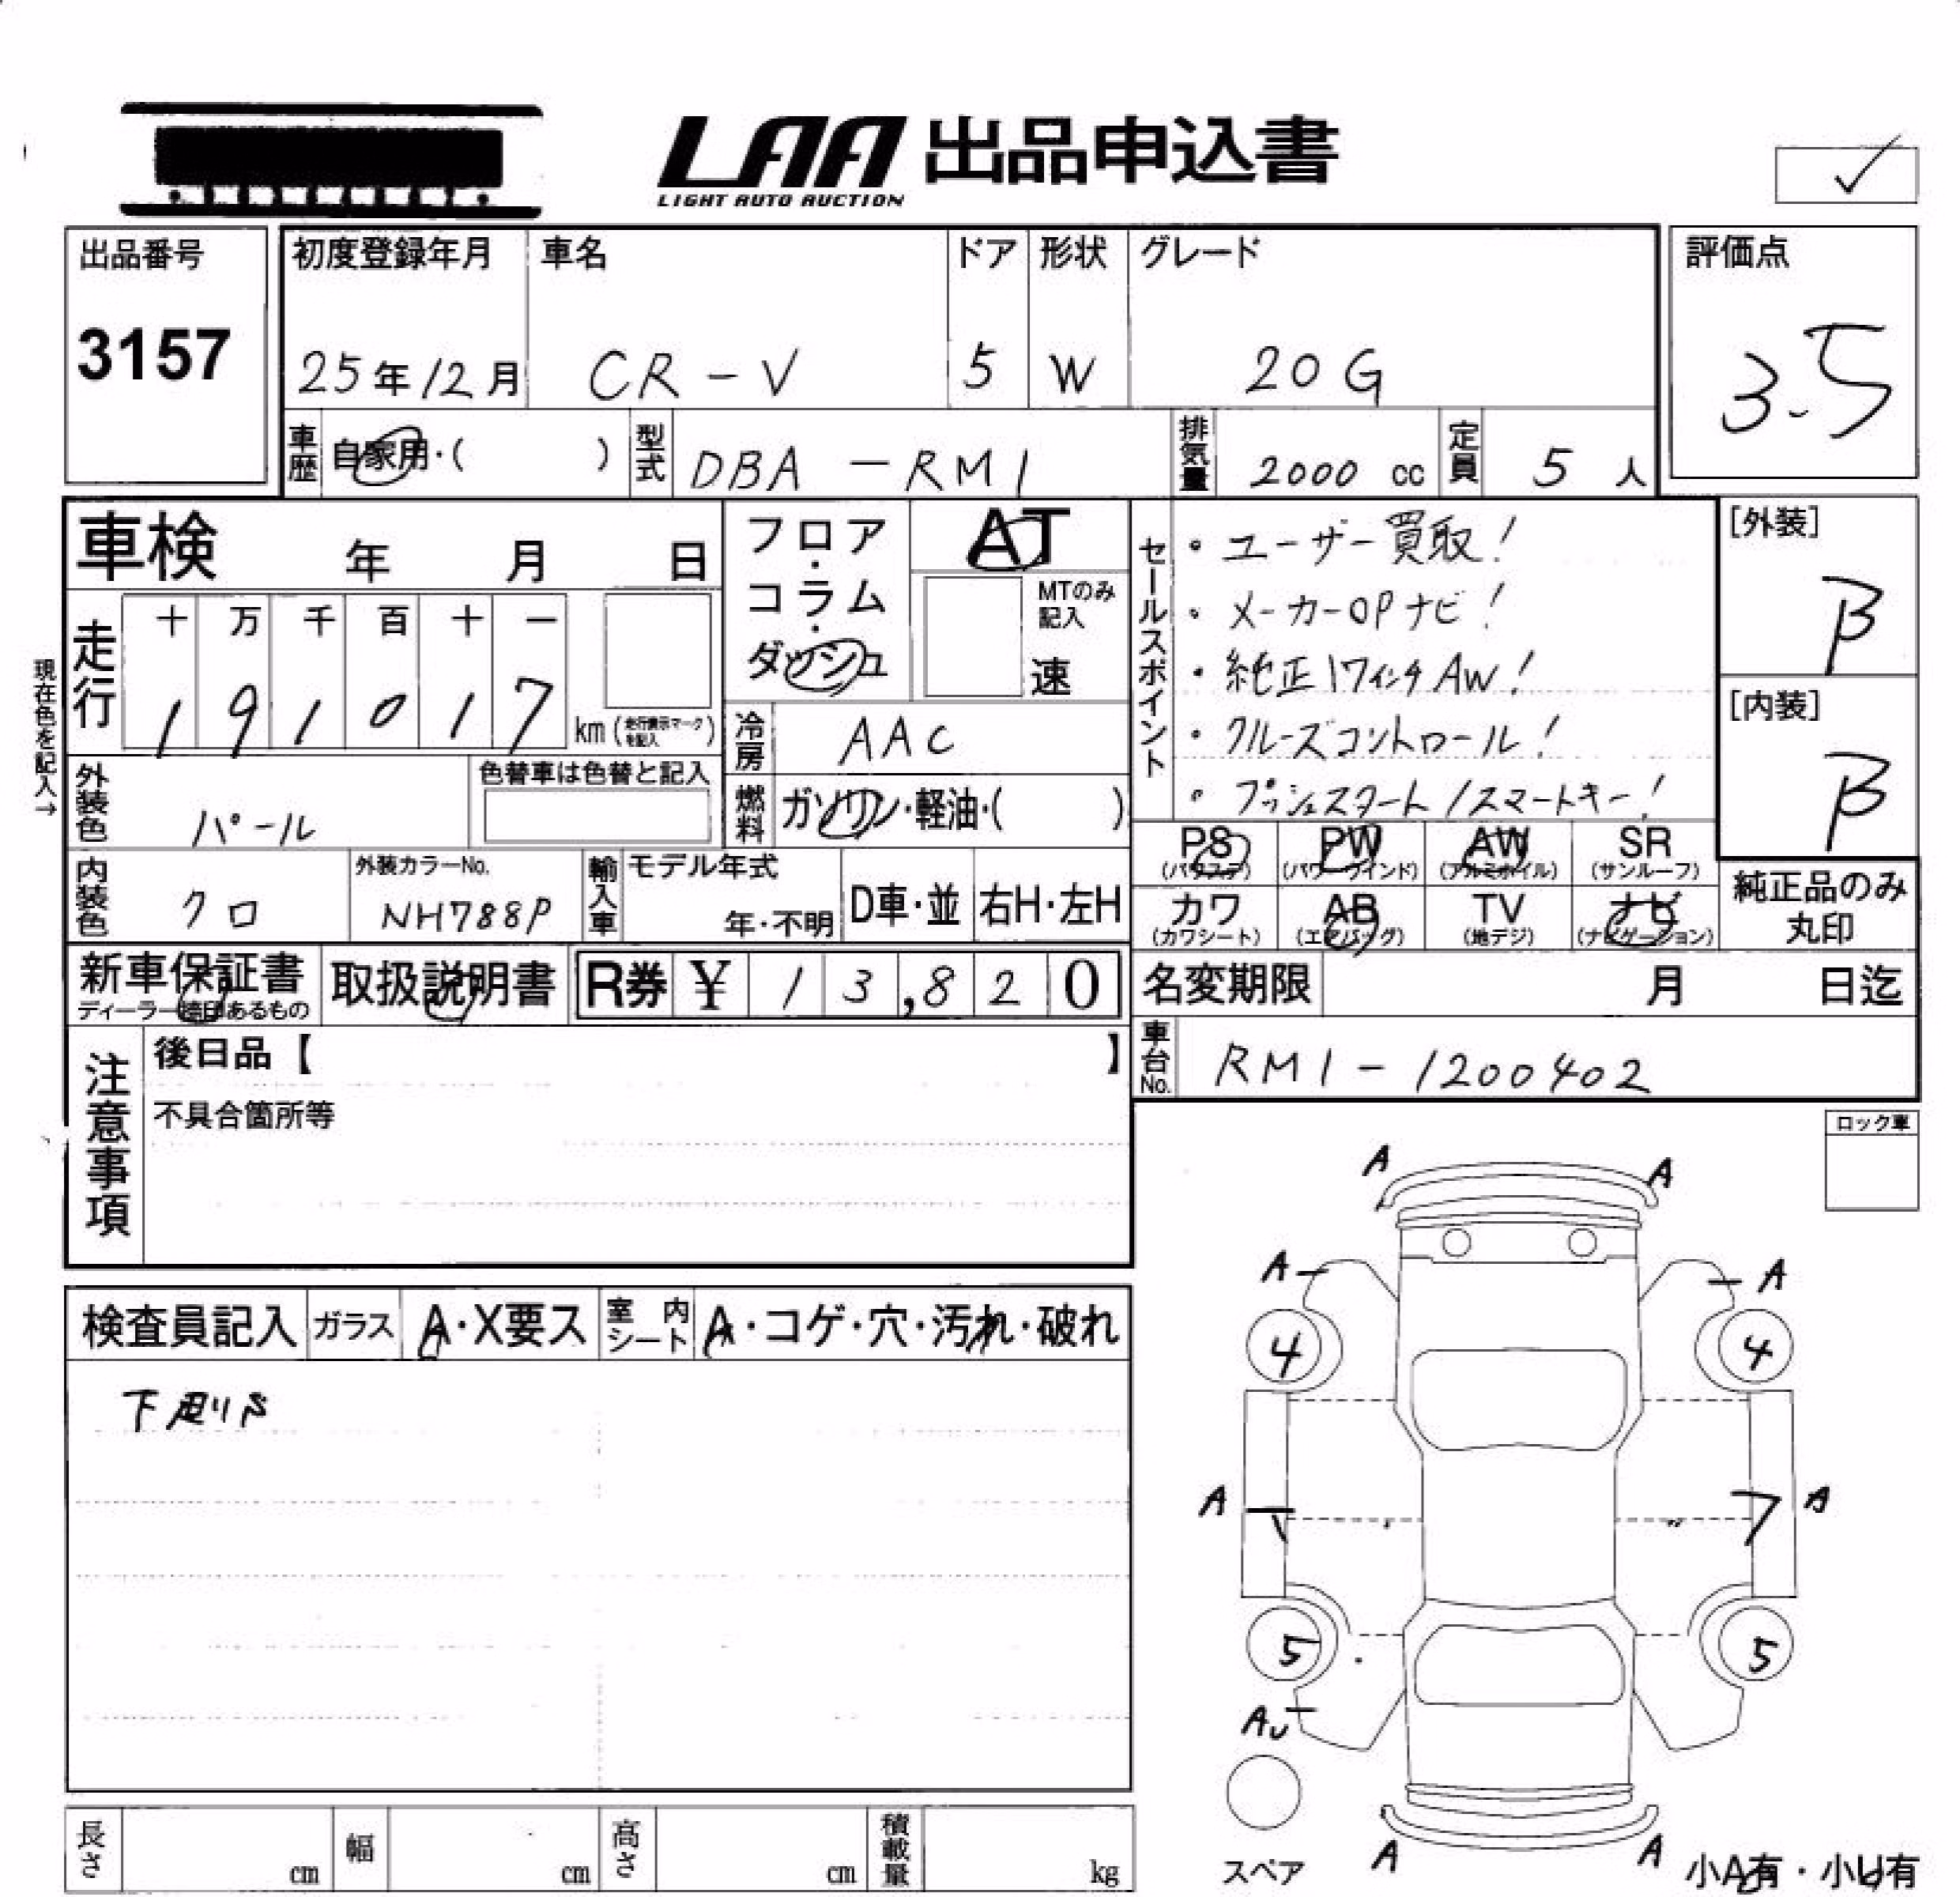 LAA 出品申込書
LIGHT AUTO AUCTION
出品番号
3157
初度登録年月
25年12月
車名
CR-V
ドア
5
形状
W
グレード
20G
評価点
3.5
車歴
自家用・( )
型式
DBA-RM1
排気量
2000 cc
定員
5 人
車検 年 月 日
現在色を記入→
走行
十 万 千 百 十 一
1 9 1 0 1 7
km(走行表示マークを記入)
フロア・コラム・ダッシュ
AT
MTのみ記入
速
冷房
AAC
燃料
ガソリン・軽油・( )
セールスポイント
・ユーザー買取!
・メーカーOPナビ!
・純正17インチAW!
・クルーズコントロール!
・プッシュスタート/スマートキー!
[外装]
B
[内装]
B
外装色
パール
色替車は色替と記入
内装色
クロ
外装カラーNo.
NH788P
輸入車
モデル年式
年・不明
D車・並
右H・左H
PS
(パワステ)
PW
(パワーウインド)
AW
(アルミホイル)
SR
(サンルーフ)
カワ
(カワシート)
AB
(エアバッグ)
TV
(地デジ)
ナビ
(ナビゲーション)
純正品のみ
丸印
新車保証書
ディーラー捺印あるもの
取扱説明書
R券 ¥ 13,820
名変期限 月 日迄
車台No.
RM1-1200402
注意事項
後日品【 】
不具合箇所等
ロック車
検査員記入
ガラス
A・X要ス
室内シート
A・コゲ・穴・汚れ・破れ
下廻りS
A A
A A
4 4
A A
5 5
AU
A A
スペア
小A有・小U有
長さ cm
幅 cm
高さ cm
積載量 kg